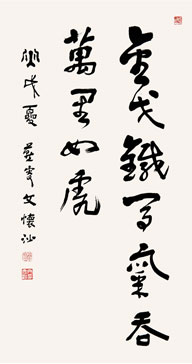 金戈鐵馬氣吞
萬里如虎
戌夏 燕叟文懷沙